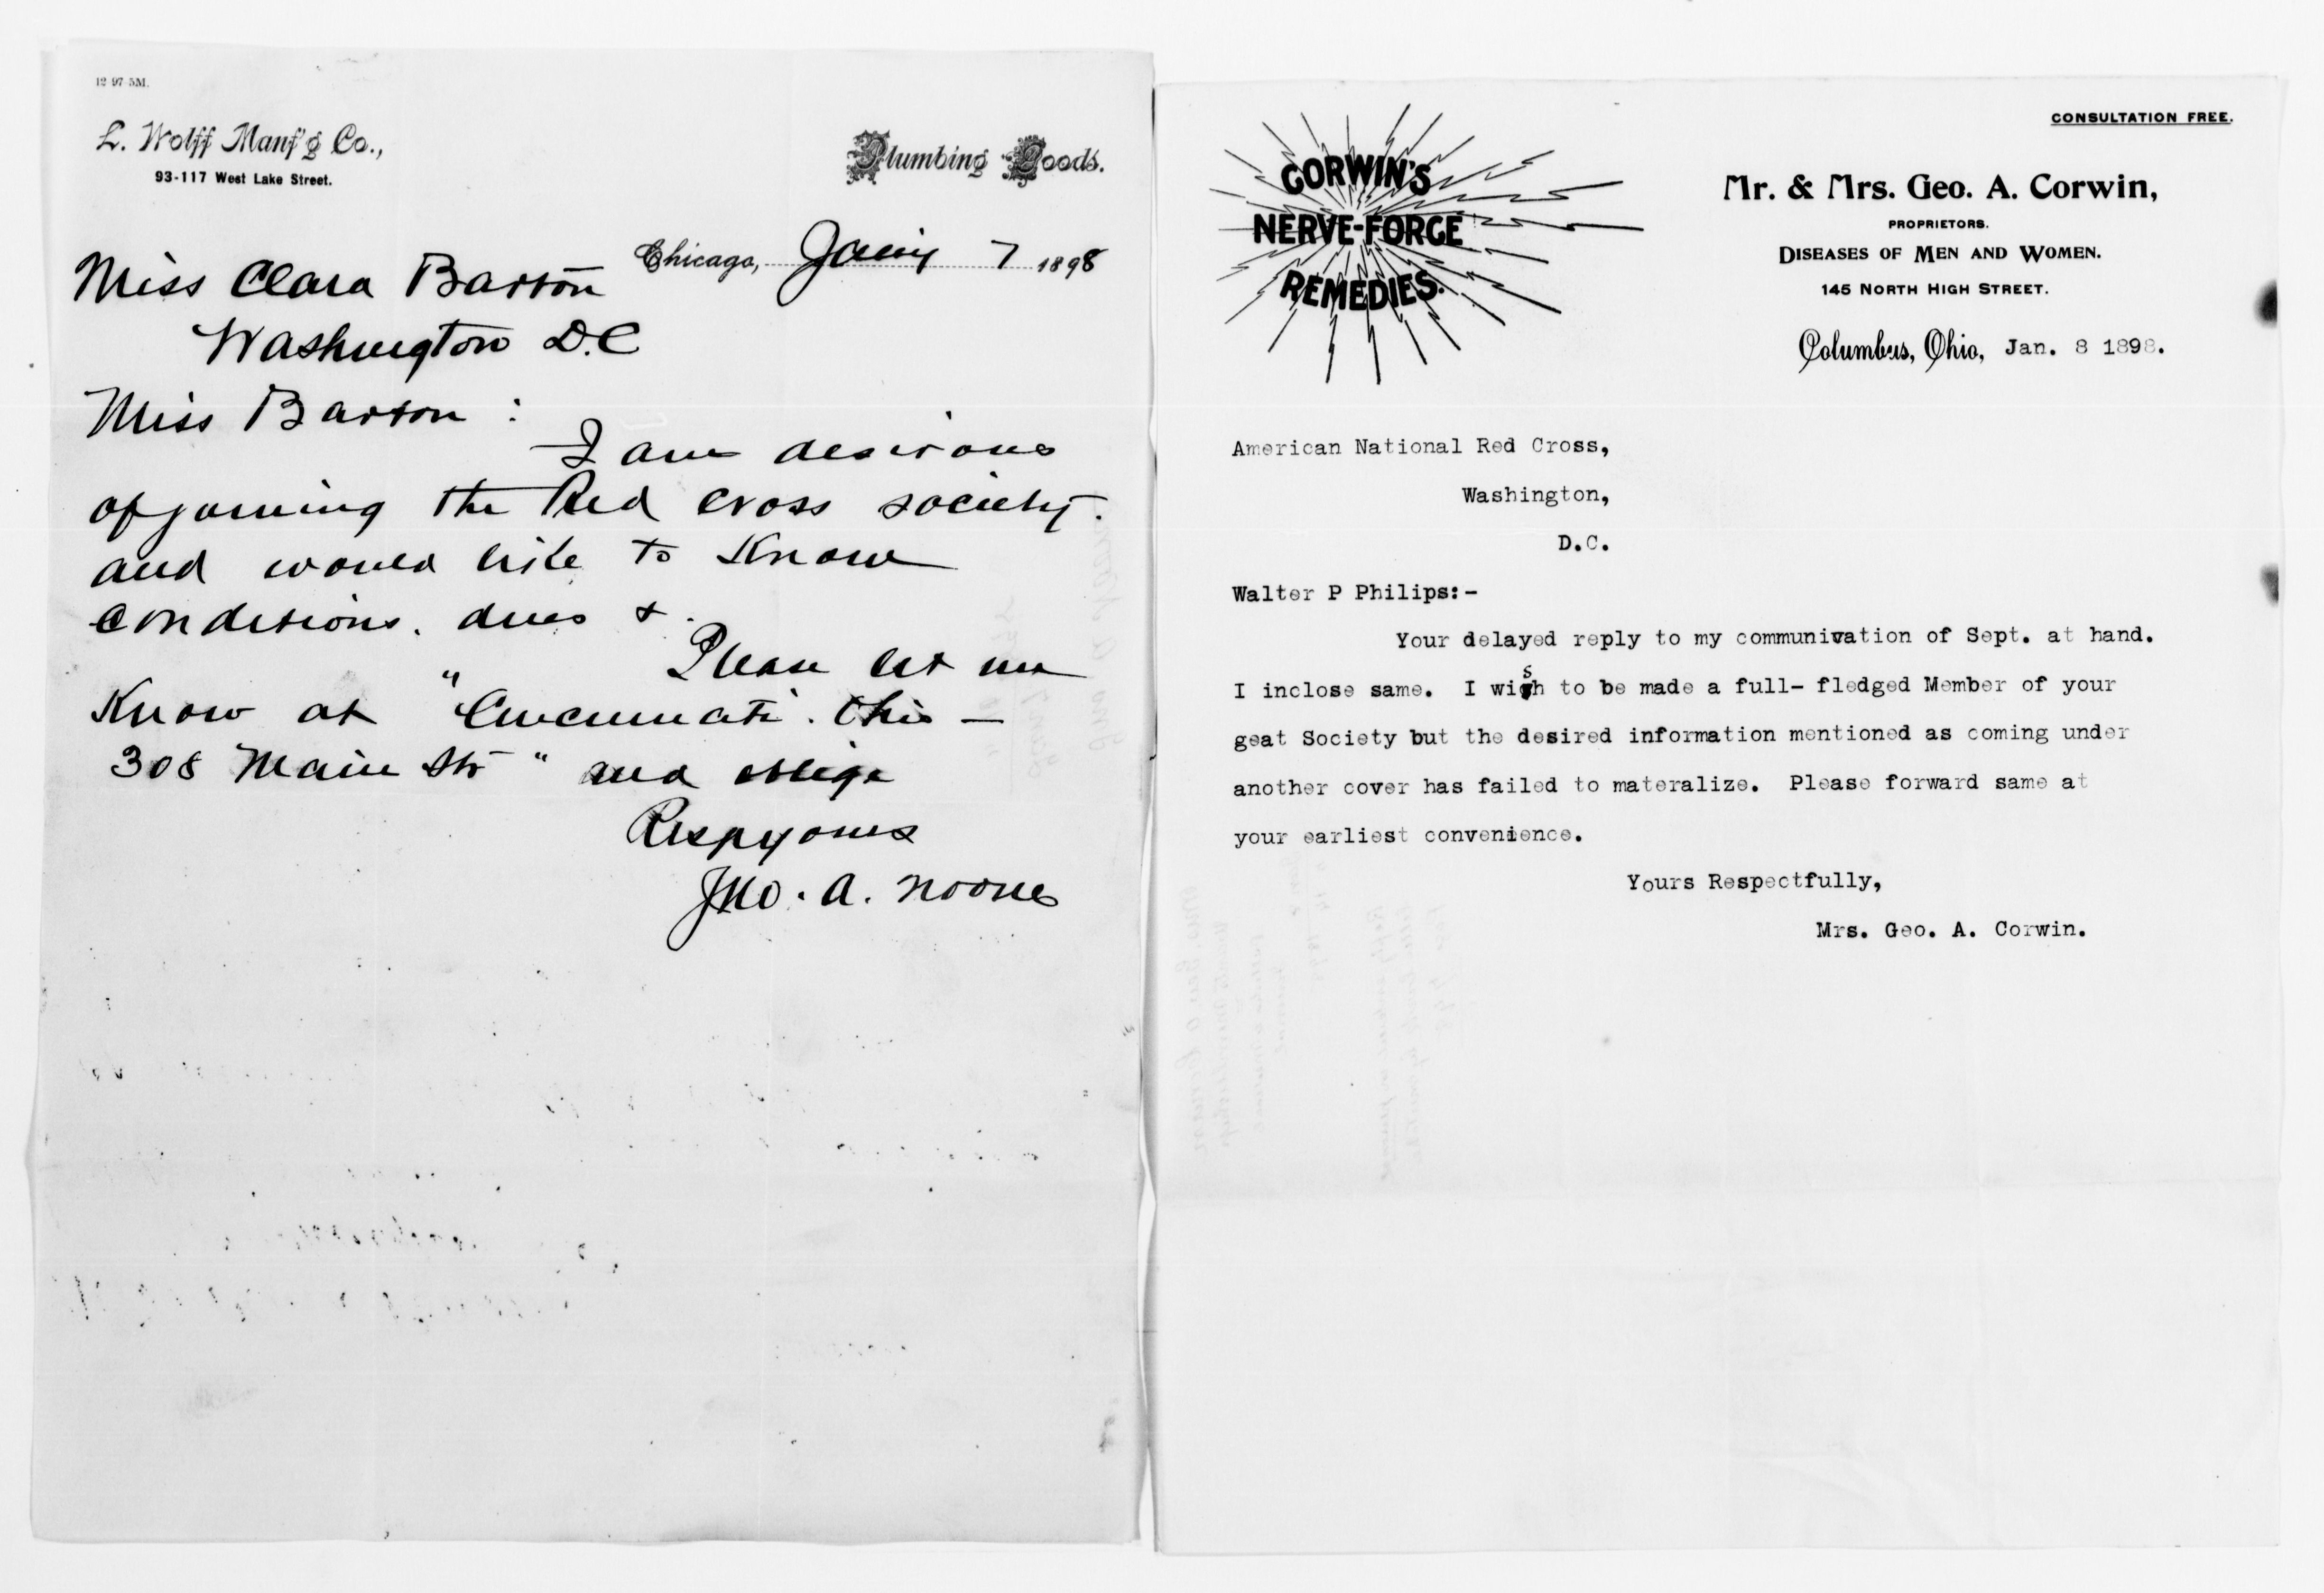 12 97 5M.
L. Wolff Manf'g Co.,
93-117 West Lake Street.
Plumbing Goods.
Chicago, Jany 7 1898
Miss Clara Barton
Washington D.C
Miss Barton :
I am desirous
of joining the Red Cross society.
and would like to Know
conditions. dues &.
Please let me
Know at "Cincinnati. Ohio —
308 Main St " and oblige
Respy yours
Jno. A. Noone
CONSULTATION FREE.
CORWIN'S
NERVE-FORCE
REMEDIES.
Mr. & Mrs. Geo. A. Corwin,
PROPRIETORS.
DISEASES OF MEN AND WOMEN.
145 NORTH HIGH STREET.
Columbus, Ohio, Jan. 8 1898.
American National Red Cross,
Washington,
D.C.
Walter P Philips:-
Your delayed reply to my communivation of Sept. at hand.
I inclose same. I wish to be made a full- fledged Member of your
geat Society but the desired information mentioned as coming under
another cover has failed to materalize. Please forward same at
your earliest convenience.
Yours Respectfully,
Mrs. Geo. A. Corwin.